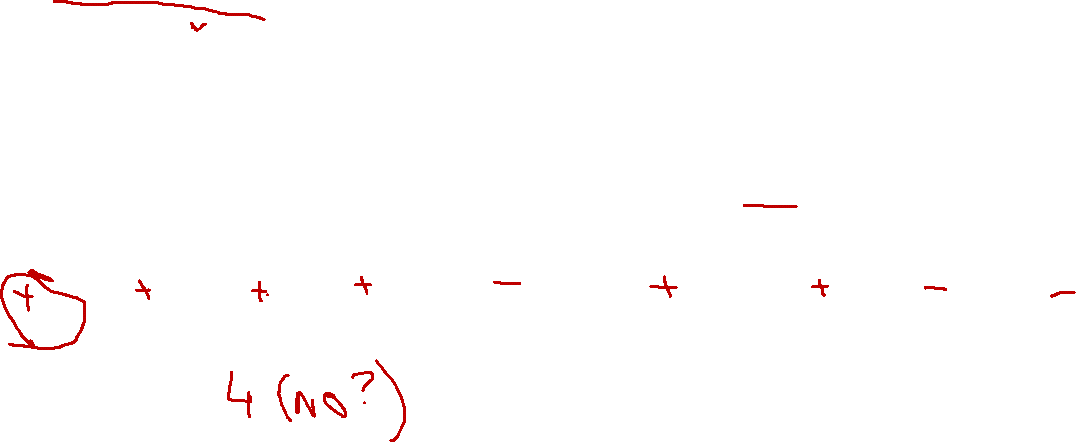 + + + + - + + - -
4 (NO?)